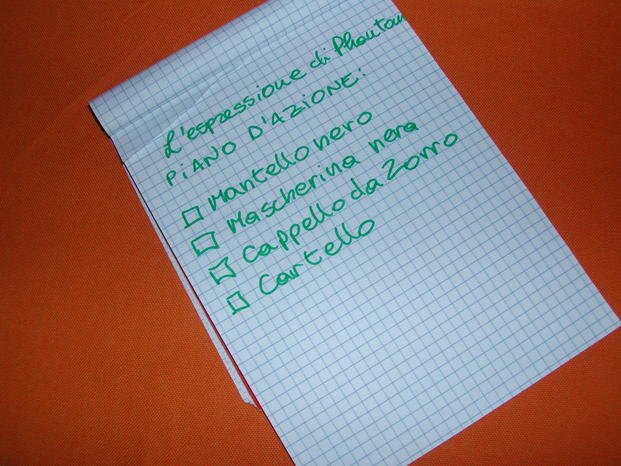 L'espressione di Phantom
PIANO D'AZIONE:
Mantello nero
Mascherina nera
Cappello da Zorro
Cartello